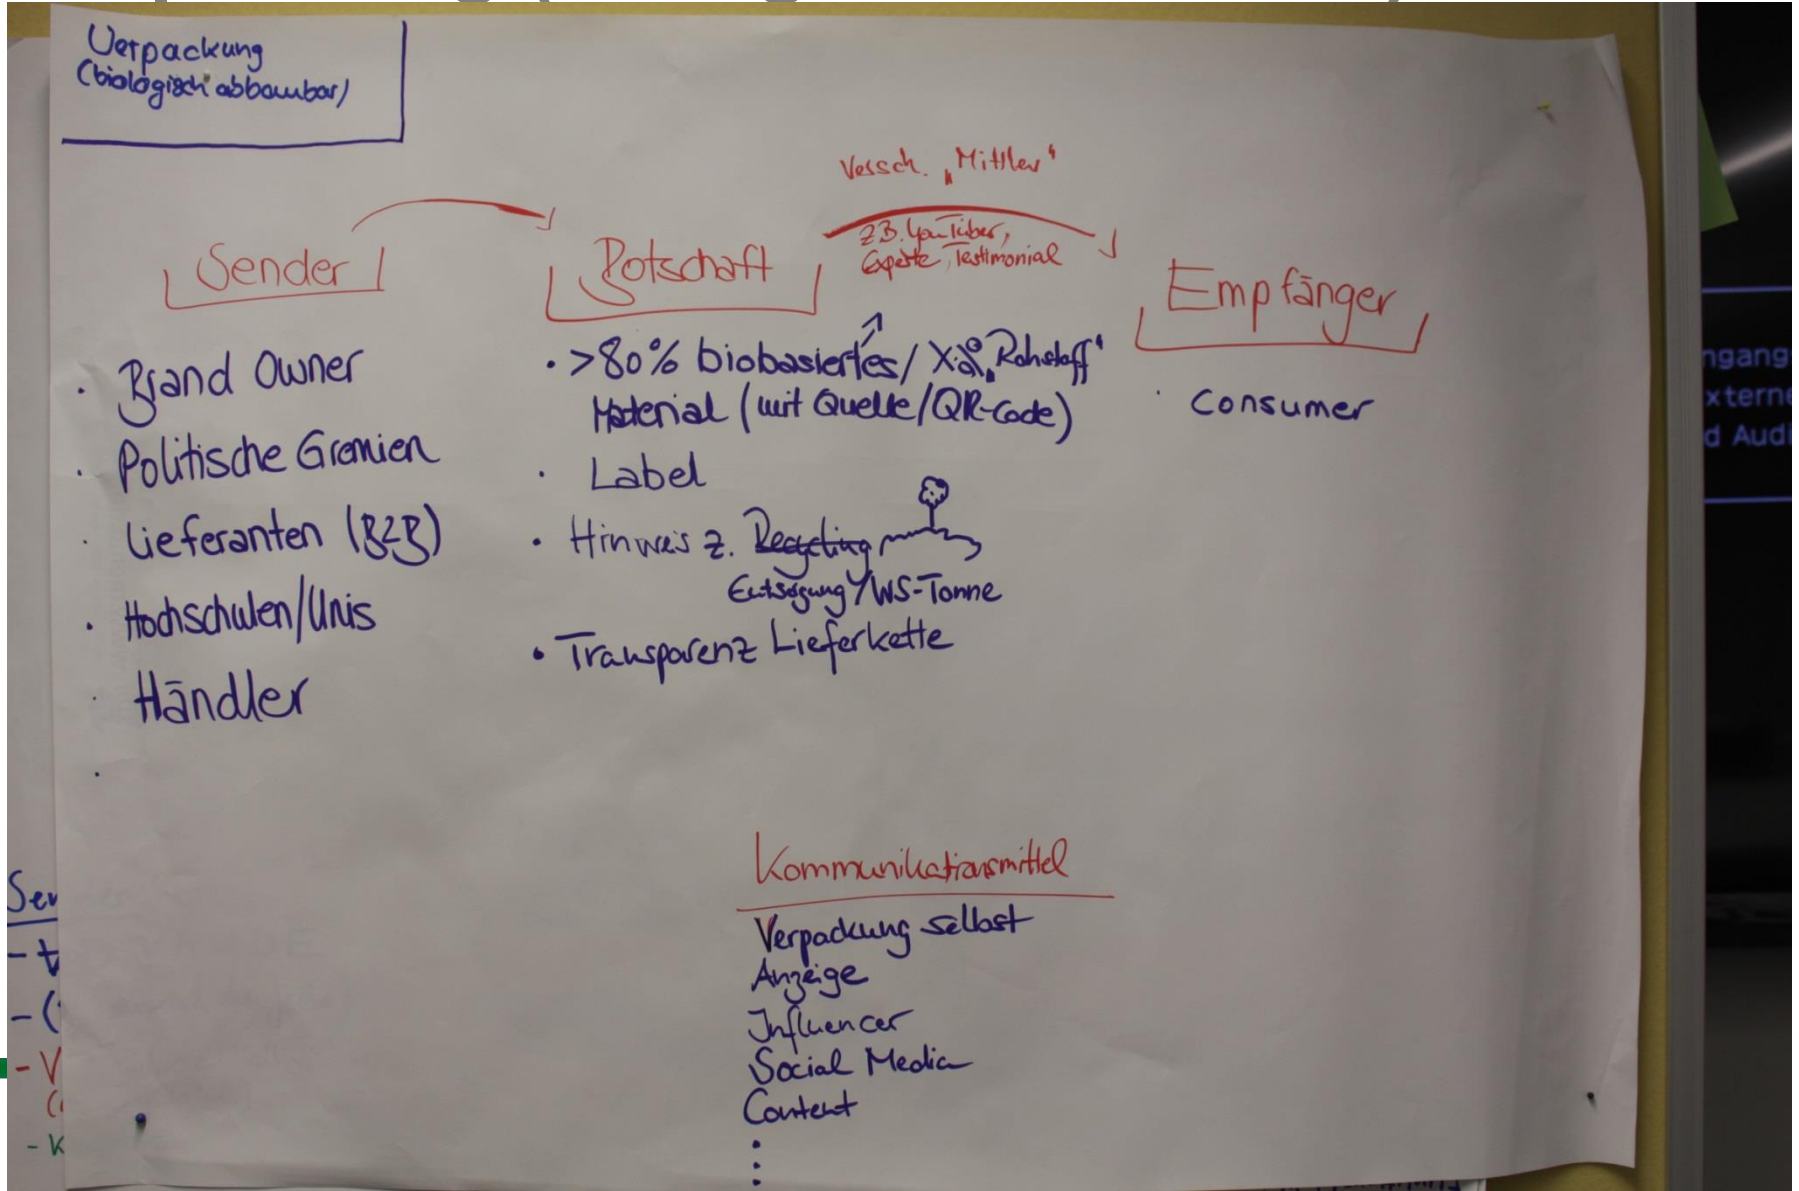 Verpackung
(biologisch abbaubar)
Versch. „Mittler“
z.B. YouTuber,
Experte, Testimonial
Sender
Botschaft
Empfänger
· Brand Owner
· Politische Gremien
· Lieferanten (B2B)
· Hochschulen/Unis
· Händler
·
· >80% biobasiertes / X% „Rohstoff“
Material (mit Quelle/QR-Code)
· Label
· Hinweis z. Recycling
Entsorgung/WS-Tonne
· Transparenz Lieferkette
· Consumer
Kommunikationsmittel
Verpackung selbst
Anzeige
Influencer
Social Media
Content
ngang
xterne
d Audi